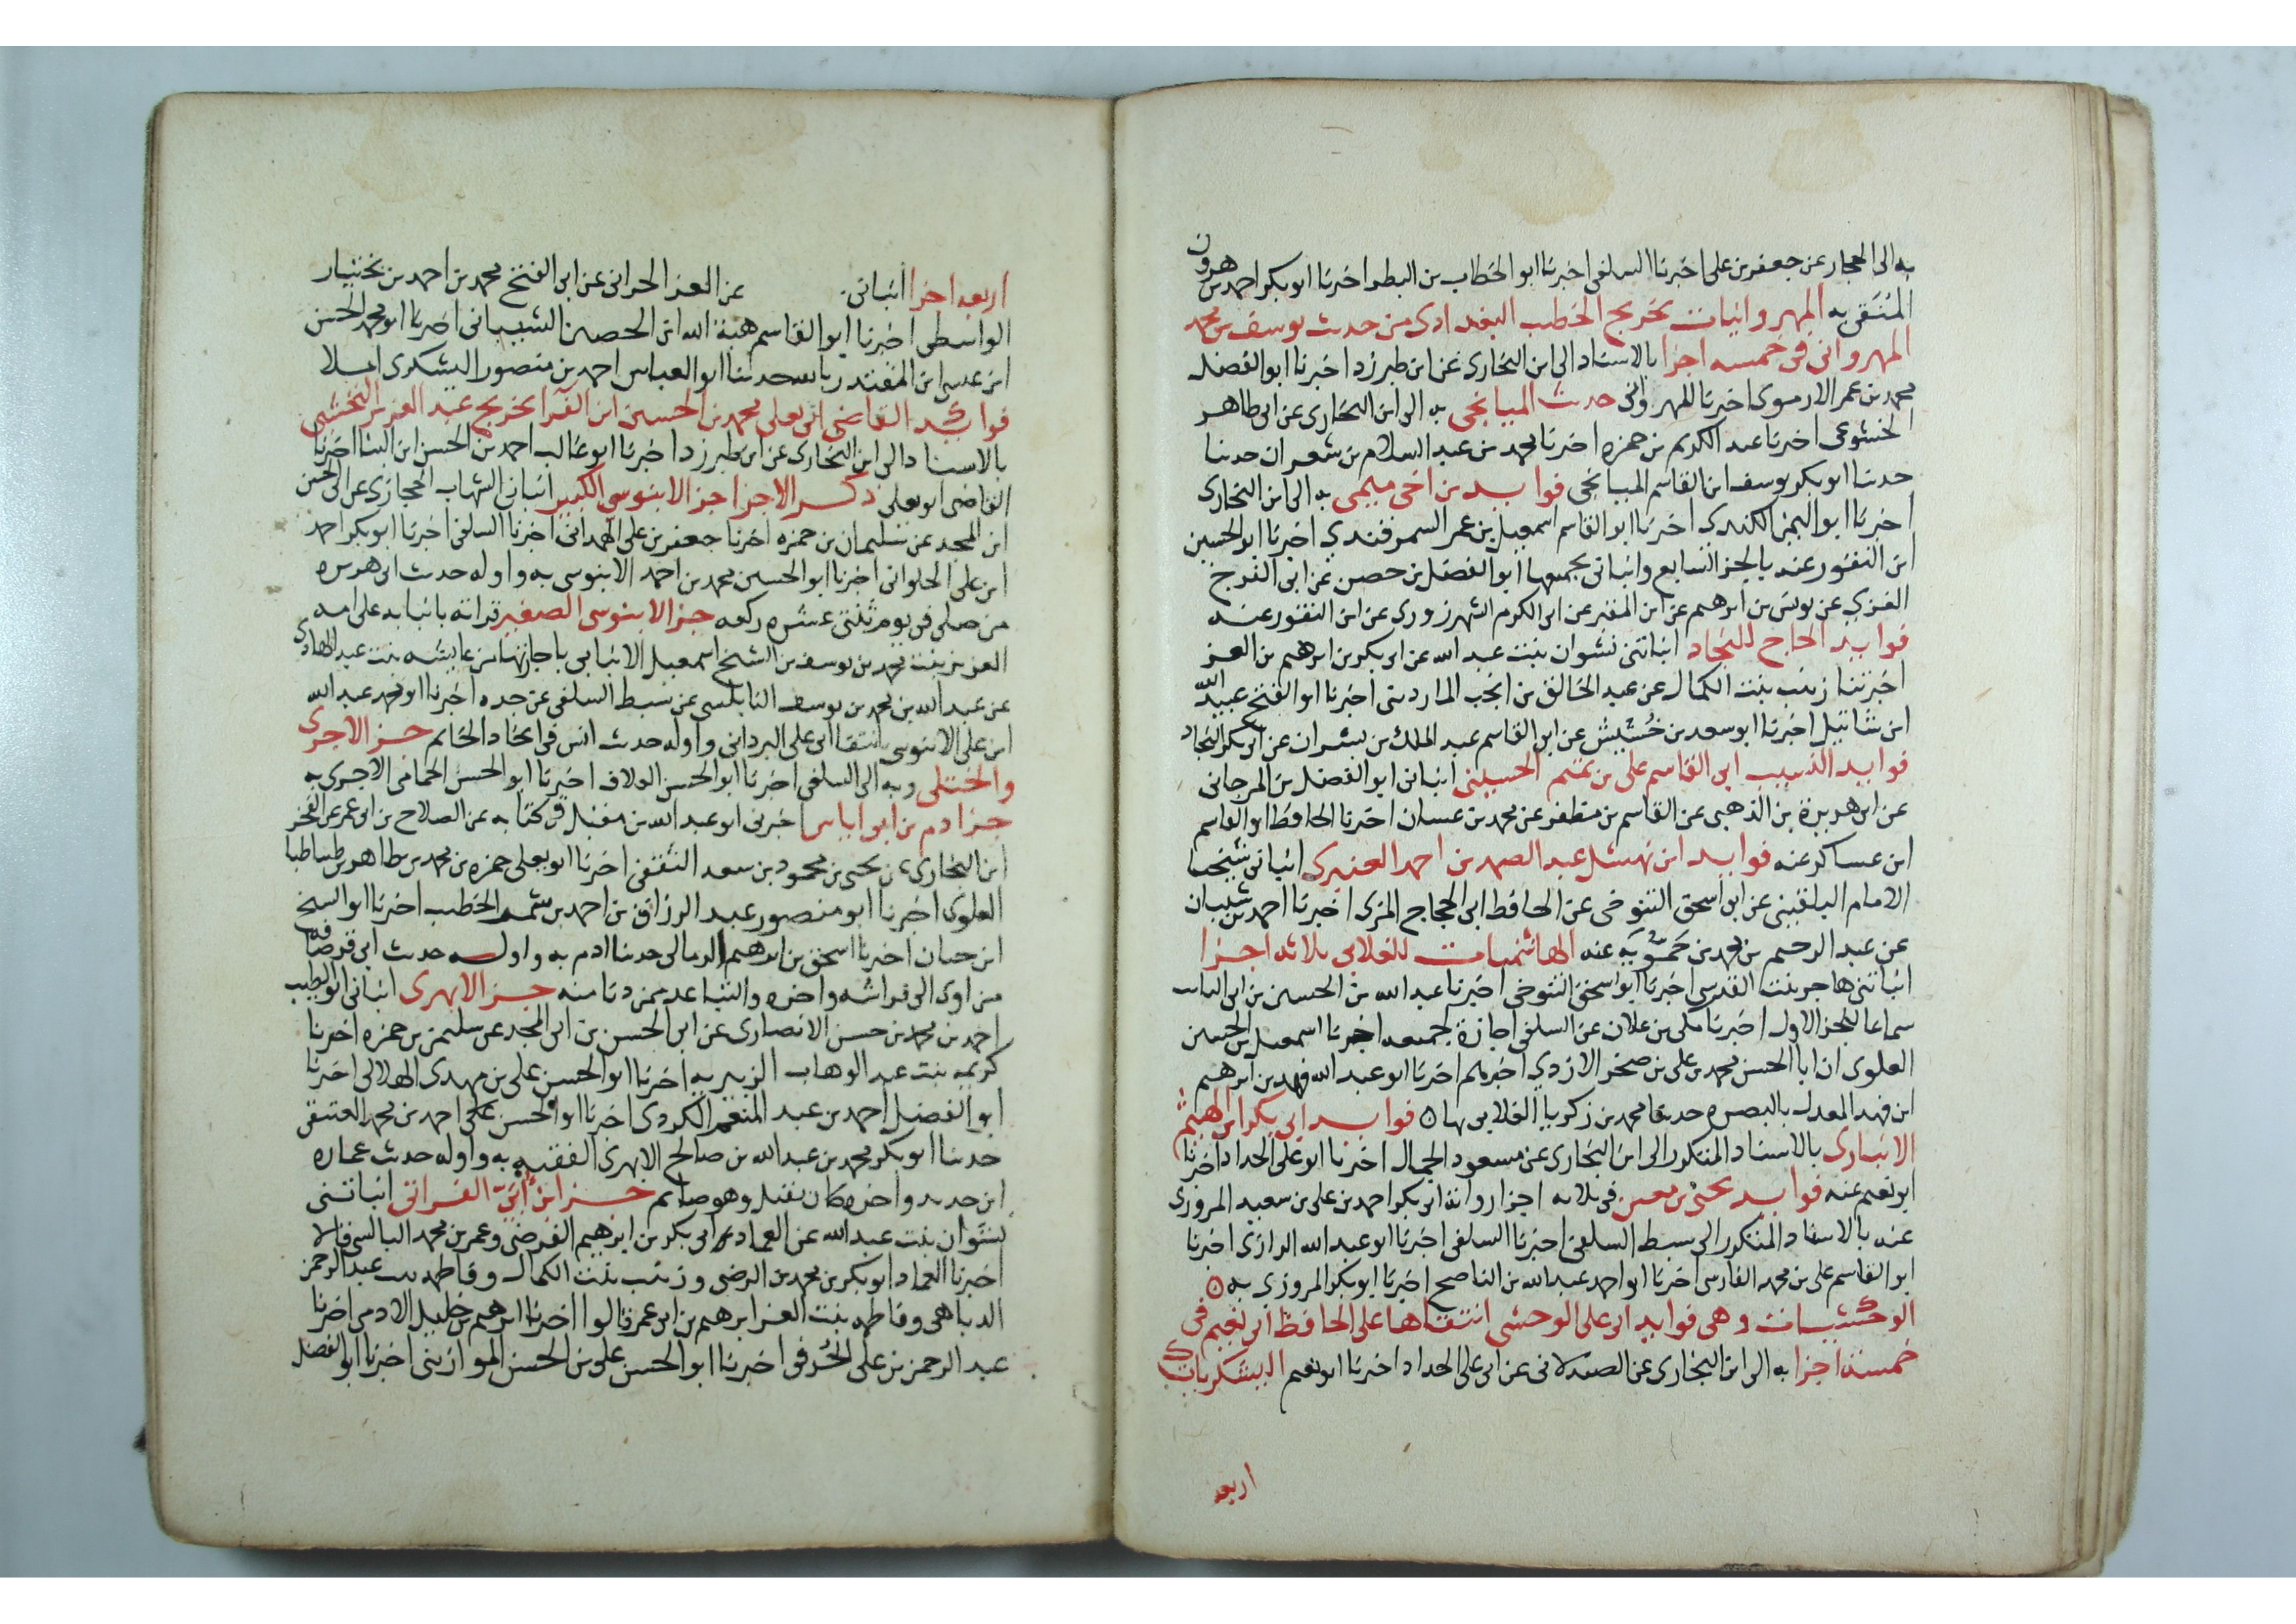 به الى الحجار عن جعفر بن على اخبرنا السلفى اخبرنا ابو الخطاب بن البطر اخبرنا ابو بكر احمد بن هرون
المنتقى به المهروانيات تخريج الخطيب البغدادى من حديث يوسف بن محمد
المهروانى فى خمسه اجزا بالاسناد الى ابن البخارى عن ابن طبرزد اخبرنا ابو الفضل
محمد بن عمر الارموى اخبرنا المهروانى حديث الميانجى به الى ابن البخارى عن ابى طاهر
الخشوعى اخبرنا عبد الكريم بن حمزه اخبرنا محمد بن عبد السلام بن سعدان حدثنا
حدثنا ابو بكر يوسف ابن القاسم الميانجى فوايد بن اخى ميمى به الى ابن البخارى
اخبرنا ابو اليمن الكندى اخبرنا ابو القاسم اسمعيل بن عمر السمرقندى اخبرنا ابو الحسين
ابن النقور عنه بالجز السابع وانبانى بجميعها ابو الفضل بن حصن عن ابى الفرج
الغزى عن يونس بن ابرهيم عن ابن المقير عن ابى الكرم الشهرزورى عن ابن النقور عنه
فوايد الحاج للنجاد انباتنى نشوان بنت عبد الله عن ابى بكر بن ابرهيم بن العز
اخبرتنا زينب بنت الكمال عن عبد الخالق بن انجب الماردينى اخبرنا ابو الفتح عبيد الله
ابن شاتيل اخبرنا ابو سعد بن خشيش عن ابى القاسم عبد الملك بن بشران عن ابى بكر النجاد
فوايد النسيب ابى القاسم على بن الحسينى انبانى ابو الفضل بن المرجانى
عن ابى هريرة بن الذهبى عن القاسم بن مظفر عن محمد بن غسان اخبرنا الحافظ ابو القاسم
ابن عساكر عنه فوايد ابن نهشل عبد الصمد بن احمد العنبرى انبانى شيخنا
الامام البلقينى عن ابى اسحق التنوخى عن الحافظ ابى الحجاج المزى اخبرنا احمد بن شيبان
عن عبد الرحيم بن محمد بن حمويه عنه الهاشميات للغلابى بلاثه اجزا
انباتنى هاجر بنت القدسى اخبرنا ابو اسحق التنوخى اخبرنا عبد الله بن الحسين بن ابى التائب
سماعا للجز الاول اخبرنا مكى بن علان عن السلفى اجازة لجميعه اخبرنا اسمعيل بن الحسين
العلوى ان ابا الحسن محمد بن على بن صخر الازدى اخبرهم اخبرنا ابو عبد الله فهد بن ابرهيم
ابن فهد المعدل بالبصره حدثنا محمد بن زكريا الغلابى بها ه فوايد ابى بكر ابن الهيثم
الانبارى بالاسناد المذكور الى ابن البخارى عن مسعود الجمال اخبرنا ابو على الحداد اخبرنا
ابو نعيم عنه فوايد يحيى بن معين فى بلاثه اجزا رواية ابى بكر احمد بن على بن سعيد المروزى
عنه بالاسناد المذكور الى سبط السلفى اخبرنا السلفى اخبرنا ابو عبد الله الرازى اخبرنا
ابو القاسم على بن محمد الفارسى اخبرنا ابو احمد عبد الله بن الناصح اخبرنا ابو بكر المروزى به ه
الوخشيات وهى فوايد ابى على الوخشى انتقاها على الحافظ ابى نعيم فى
خمسة اجزا به الى ابن البخارى عن الصيدلانى عن ابى على الحداد اخبرنا ابو نعيم اليشكريات
اربعه
اربعه اجزا انبانى عن العز الحرانى عن ابى الفتح محمد بن احمد بن بختيار
الواسطى اخبرنا ابو القاسم هبة الله ابن الحصين الشيبانى اخبرنا ابو محمد الحسن
ابن عيسى ابن المقتدر بالله حدثنا ابو العباس احمد بن منصور اليشكرى املا
فوايد القاضى ابى يعلى محمد بن الحسين ابن الفرا تخريج عبد العزيز النخشبى
بالاسناد الى ابن البخارى عن ابن طبرزد اخبرنا ابو غالب احمد بن الحسن ابن البنا اخبرنا
القاضى ابو يعلى ذكر الاجزا جز الابنوسى الكبير انبانى الشهاب الحجازى عن ابى الحسن
ابن المجد عن سليمان بن حمزه اخبرنا جعفر بن على الهمدانى اخبرنا السلفى اخبرنا ابو بكر احمد
ابن على الحلوانى اخبرنا ابو الحسين محمد بن احمد الابنوسى به واوله حديث ابى هريره
من صلى فى يوم ثنتى عشره ركعه جز الابنوسى الصغير قراته بانبابه على امه
العزيز بنت محمد بن يوسف بن الشيخ اسمعيل الانبابى باجازتها من عايشه بنت عبد الهادى
عن عبد الله بن محمد بن يوسف النابلسى عن سبط السلفى عن جده اخبرنا ابو محمد عبد الله
ابن على الابنوسى بانتقا ابى على البردانى واوله حديث انس فى اتخاذ الخاتم جز الاجرى
والختلى وبه الى السلفى اخبرنا ابو الحسن العلاف اخبرنا ابو الحسن الحمامى الاجرى به
جز ادم بن ابى اياس اخبرنى ابو عبد الله بن مقبل فى كتابه عن الصلاح بن ابى عمر عن الفخر
ابن البخارى عن يحيى بن محمود بن سعد الثقفى اخبرنا ابو يعلى حمزه بن محمد بن طاهر بن طباطبا
العلوى اخبرنا ابو منصور عبد الرزاق بن احمد بن الخطيب اخبرنا ابو الشيخ
ابن حيان اخبرنا اسحق بن ابرهيم الرمالى حدثنا ادم به واوله حديث ابى قرصافه
من اوى الى فراشه واخره والتباعد ممن دنا منه جز الابهرى انبانى ابو الطيب
احمد بن محمد بن حسن الانصارى عن ابى الحسن بن ابى المجد عن سليمن بن حمزه اخبرتنا
كريمه بنت عبد الوهاب الزبيريه اخبرنا ابو الحسن على بن مهدى الهلالى اخبرنا
ابو الفضل احمد بن عبد المنعم الكردى اخبرنا ابو الحسن على احمد بن محمد العتيقى
حدثنا ابو بكر محمد بن عبد الله بن صالح الابهرى الفقيه به واوله حديث عماره
ابن حديد واخره كان يقبل وهو صايم جز ابن الفراتى انباتنى
نشوان بنت عبد الله عن العماد ابى بكر بن ابرهيم الفرضى وعمر بن محمد البالسى قالا
اخبرنا العماد ابو بكر بن محمد بن الرضى وزينب بنت الكمال وفاطمه بنت عبد الرحمن
الدباهى وفاطمه بنت العز ابرهيم بن ابى عمر قالوا اخبرنا ابرهيم بن خليل الادمى اخبرنا
عبد الرحمن بن على الخرقى اخبرنا ابو الحسن على بن الحسن الموازينى اخبرنا ابو الفضل